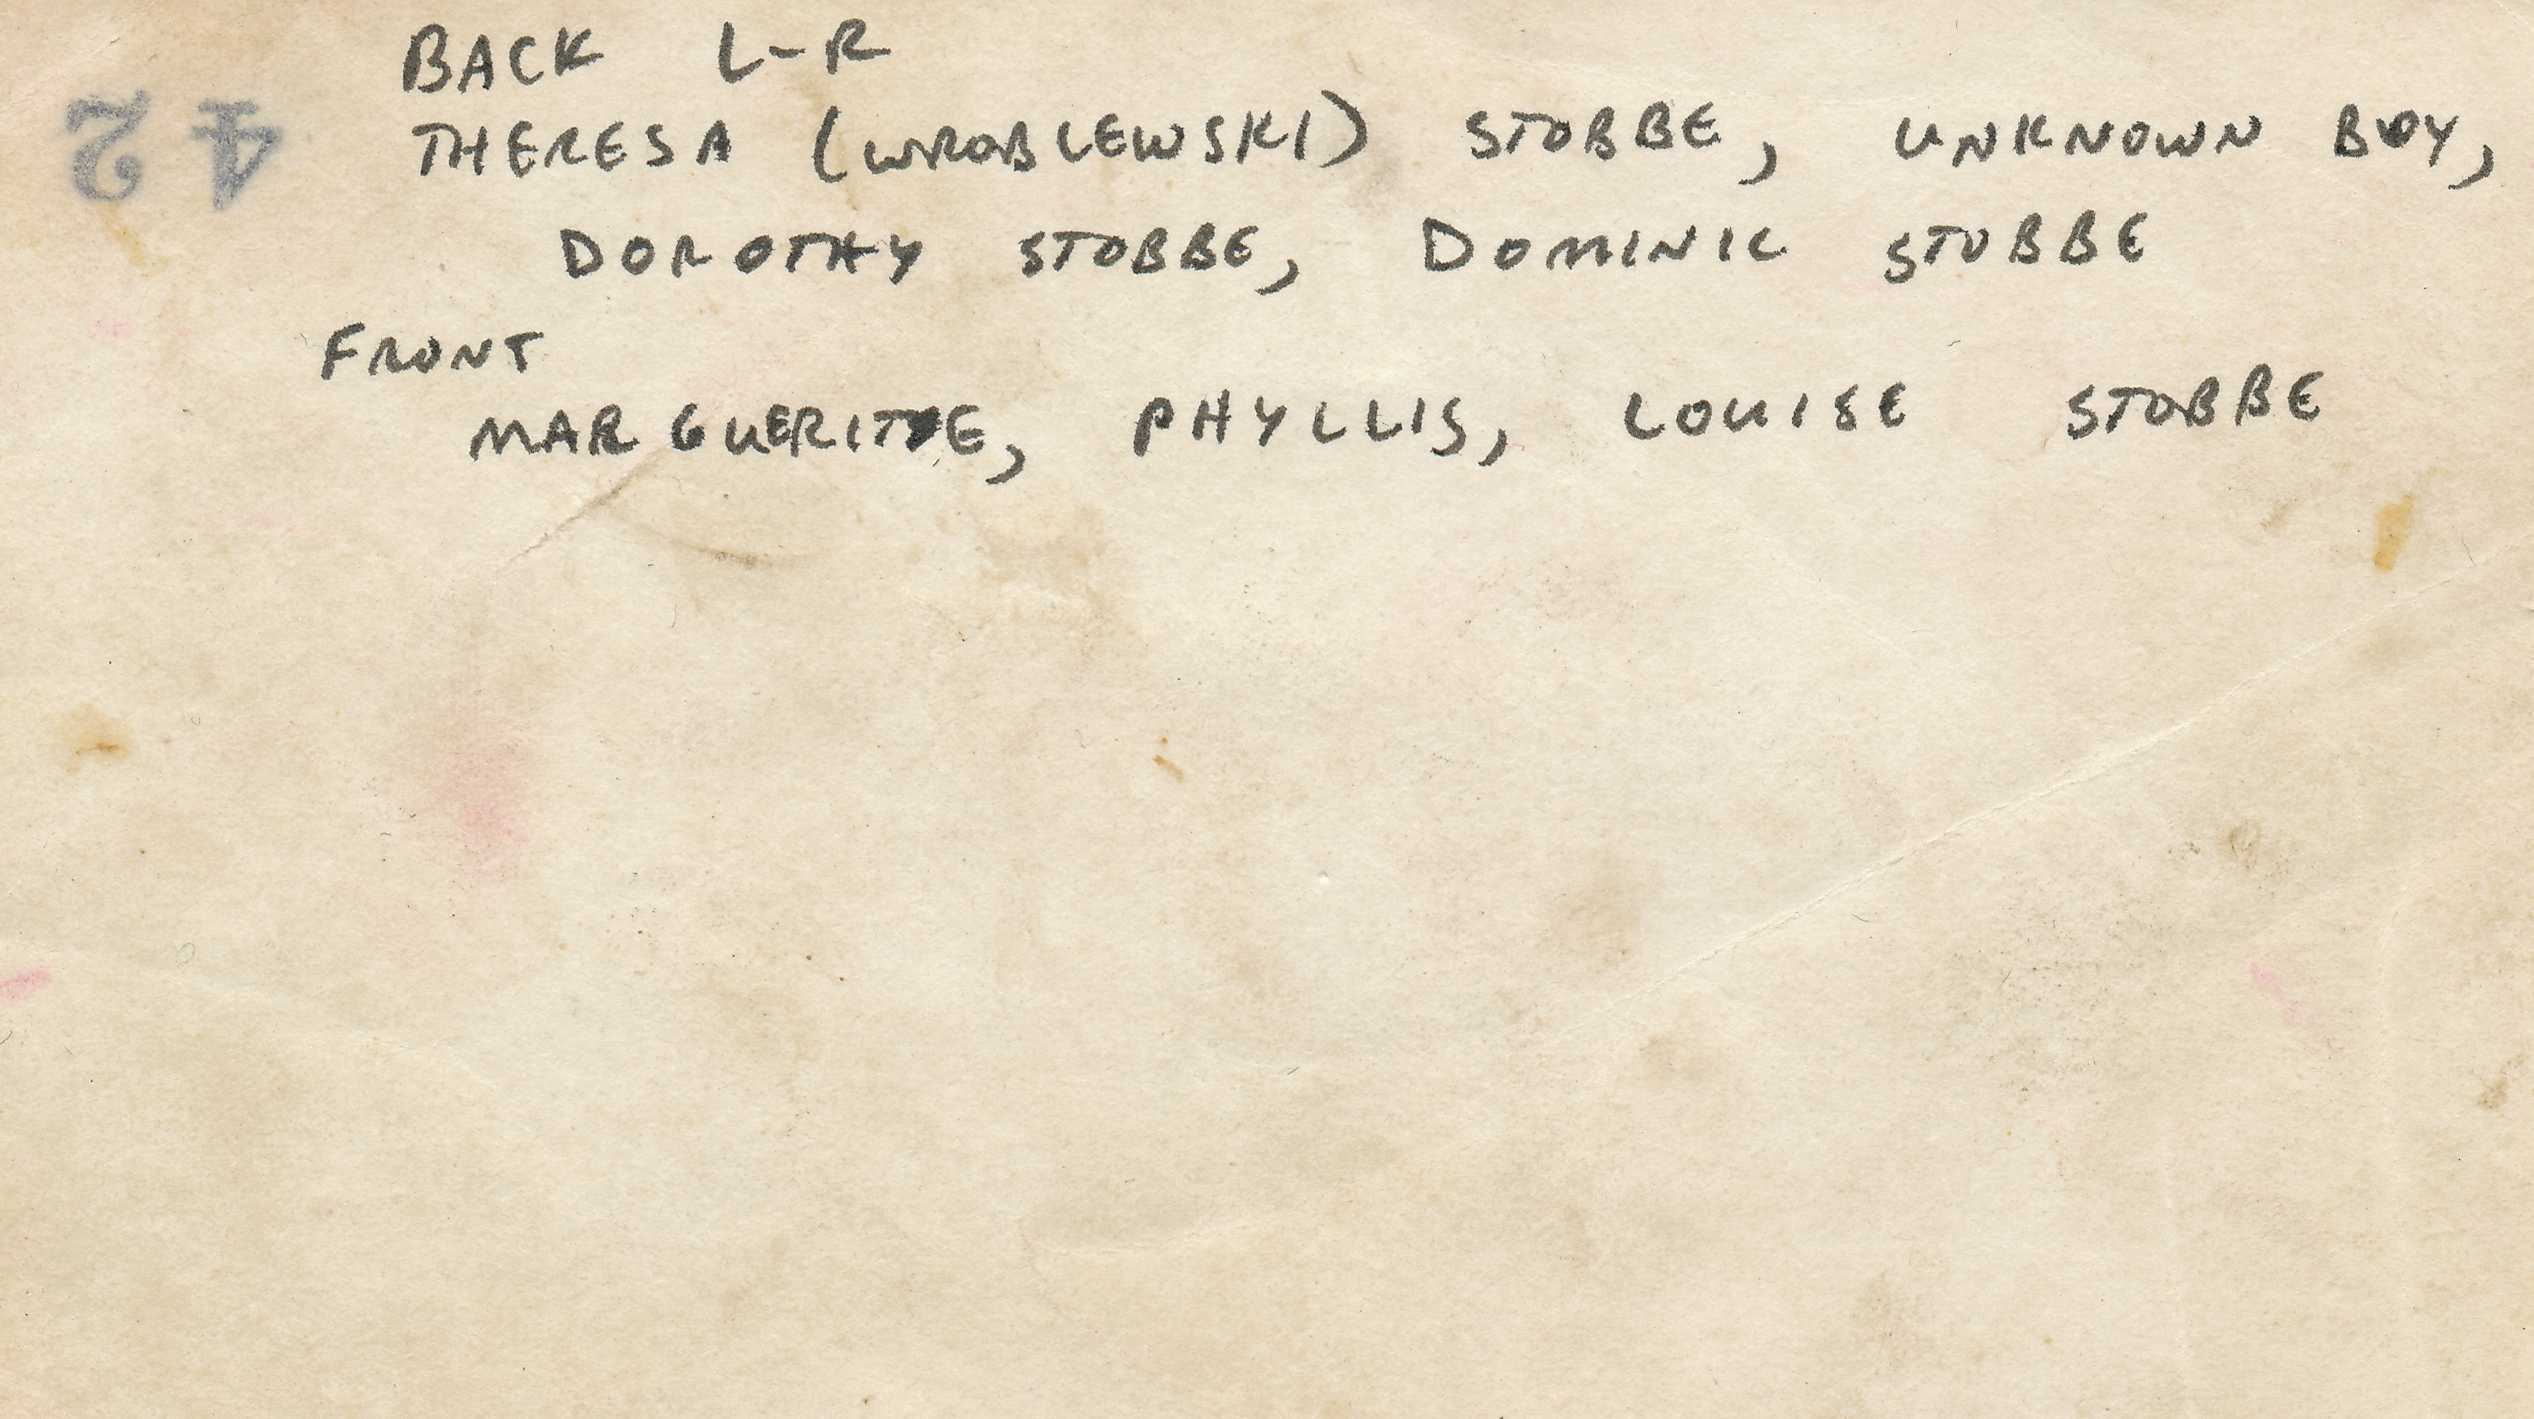 BACK L-R
42
THERESA (WROBLEWSKI) STOBBE, UNKNOWN BOY,
DOROTHY STOBBE, DOMINIC STOBBE
FRONT
MARGUERITE, PHYLLIS, LOUISE STOBBE